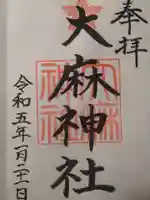 奉拝
大麻神社
令和五年一月二十一日